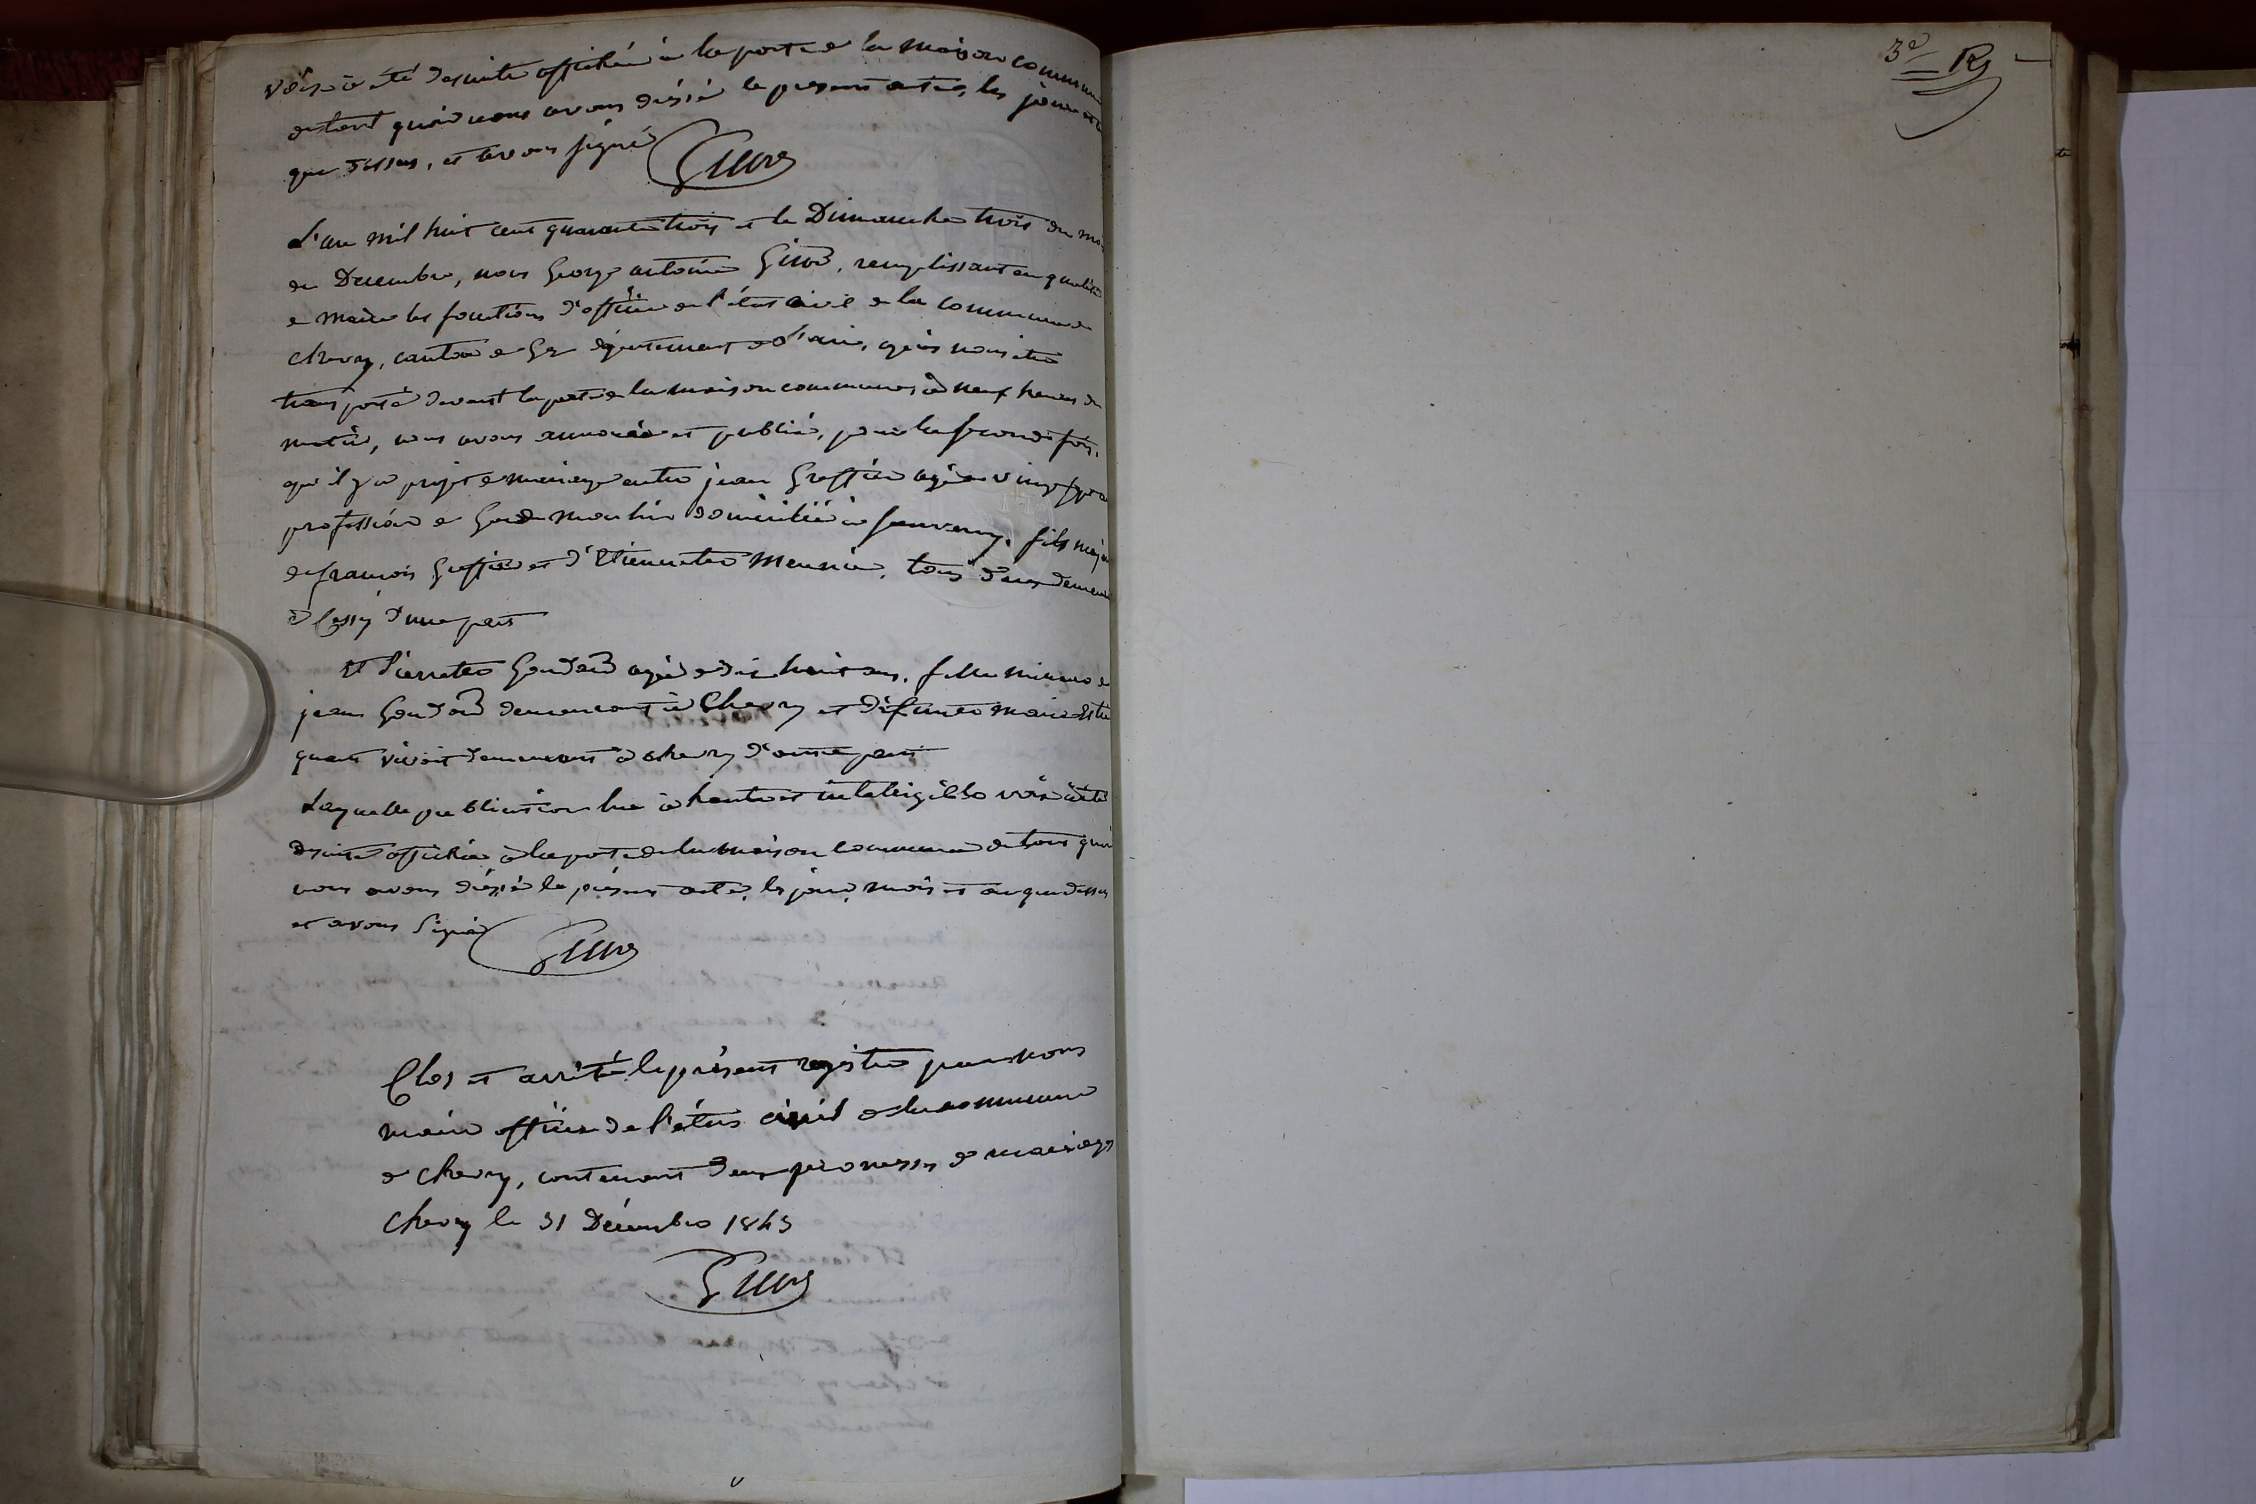 voix a été de suite affichée à la porte de la maison commune
de tout quoi nous avons dressé le present acte, les jour et
que dessus, et avons signé Girod
L'an mil huit cent quarante trois et le Dimanche trois du mois
de Decembre, nous George antoine Girod, remplissant en qualité
de maire les fonctions d'officier de l'état civil de la commune de
chevry, canton de Gex département de l'ain, après nous être
transporté devant la porte de la maison commune, à neuf heures du
matin, nous avons annoncé et publié, pour la seconde fois,
qu'il y a projet de mariage entre jean Greffier agé de vingt
profession de Garde moulin domicilié à Sauverny, fils majeur
de françois Greffier et d'Etiennette Meunier, tous deux demeurant
à Cessy d'une part
Et Pierrette Goudard agée de dix huit ans, fille mineure de
jean Goudard demeurant à Chevry et défunte Marie
quand vivait demeurant à chevry d'autre part
Laquelle publication lue à haute et intelligible voix a été
de suite affichée à la porte de la maison commune de tout quoi
nous avons dressé le présent acte, les jour, mois et an que dessus
et avons signé Girod
Clos et arrêté le présent registre par nous
maire officier de l'état civil de la commune
de chevry, contenant deux promesses de mariages
Chevry le 31 Décembre 1843
Girod
3e R